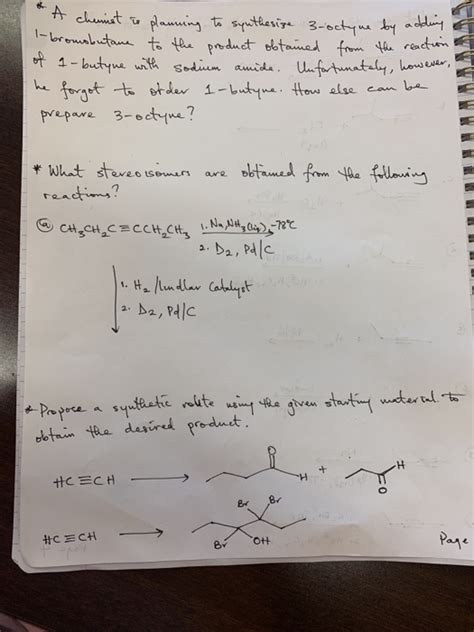 * A chemist is planning to synthesize 3-octyne by adding
1-bromobutane to the product obtained from the reaction
of 1-butyne with sodium amide. Unfortunately, however,
he forgot to order 1-butyne. How else can he
prepare 3-octyne?
* What stereoisomers are obtained from the following
reactions?
(a) CH3CH2C≡CCH2CH3 1. Na, NH3(liq), -78°C
2. D2, Pd/C
1. H2/lindlar Catalyst
2. D2, Pd/C
* Propose a synthetic route using the given starting material to
obtain the desired product.
HC≡CH O H + H O
Br Br
HC≡CH Br OH
Page